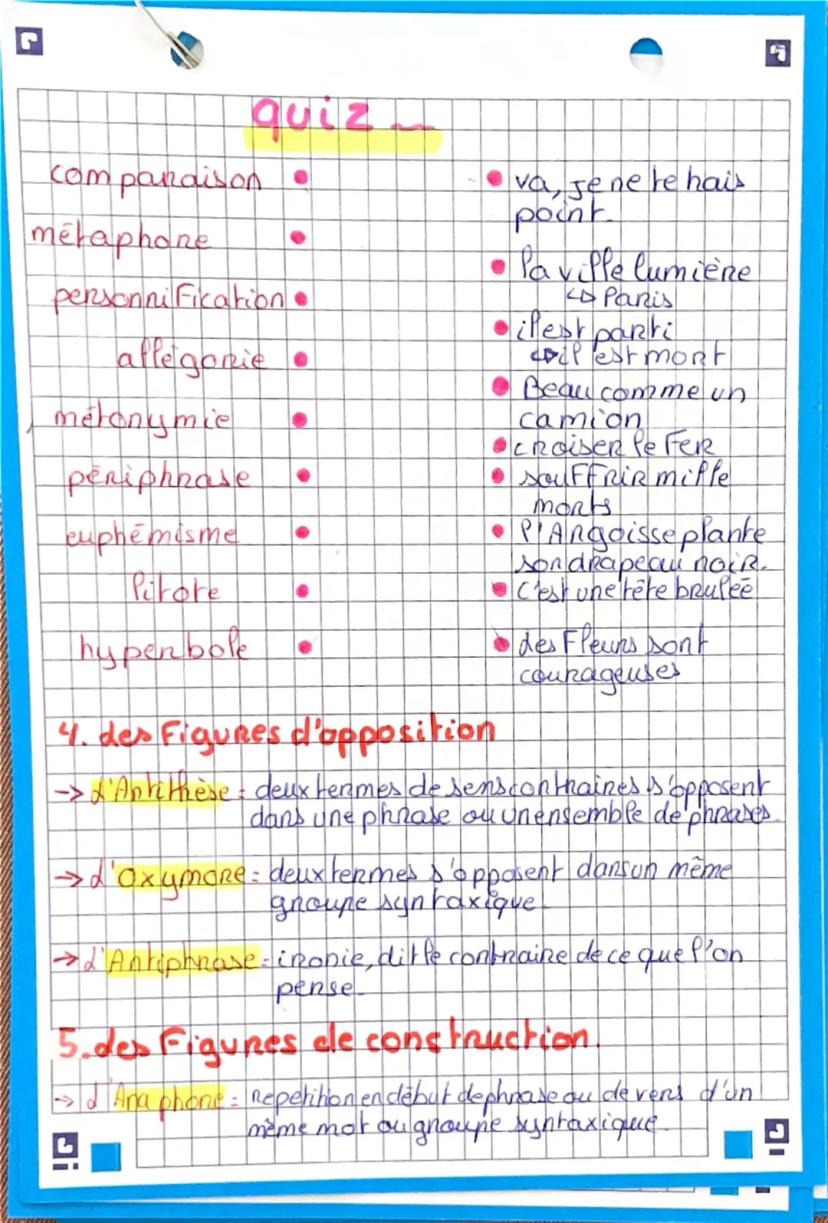 quiz
comparaison
va, je ne te hais
point.
métaphore
la ville lumière
↳ Paris
personnification
il est parti
↳ il est mort
allégorie
Beau comme un
camion
métonymie
croiser le Fer
périphrase
souffrir mille
morts
euphémisme
l'Angoisse plante
son drapeau noir.
litote
c'est une tête brulée
hyperbole
des Fleurs sont
courageuses
4. des Figures d'opposition
→ L'Antithèse: deux termes de sens contraires s'opposent
dans une phrase ou un ensemble de phrases.
→ L'Oxymore: deux termes s'opposent dans un même
groupe syntaxique.
→ L'Antiphrase: ironie, dit le contraire de ce que l'on
pense.
5. des Figures de construction.
→ L'Anaphore: Repetition en début de phrase ou de vers d'un
même mot ou groupe syntaxique.